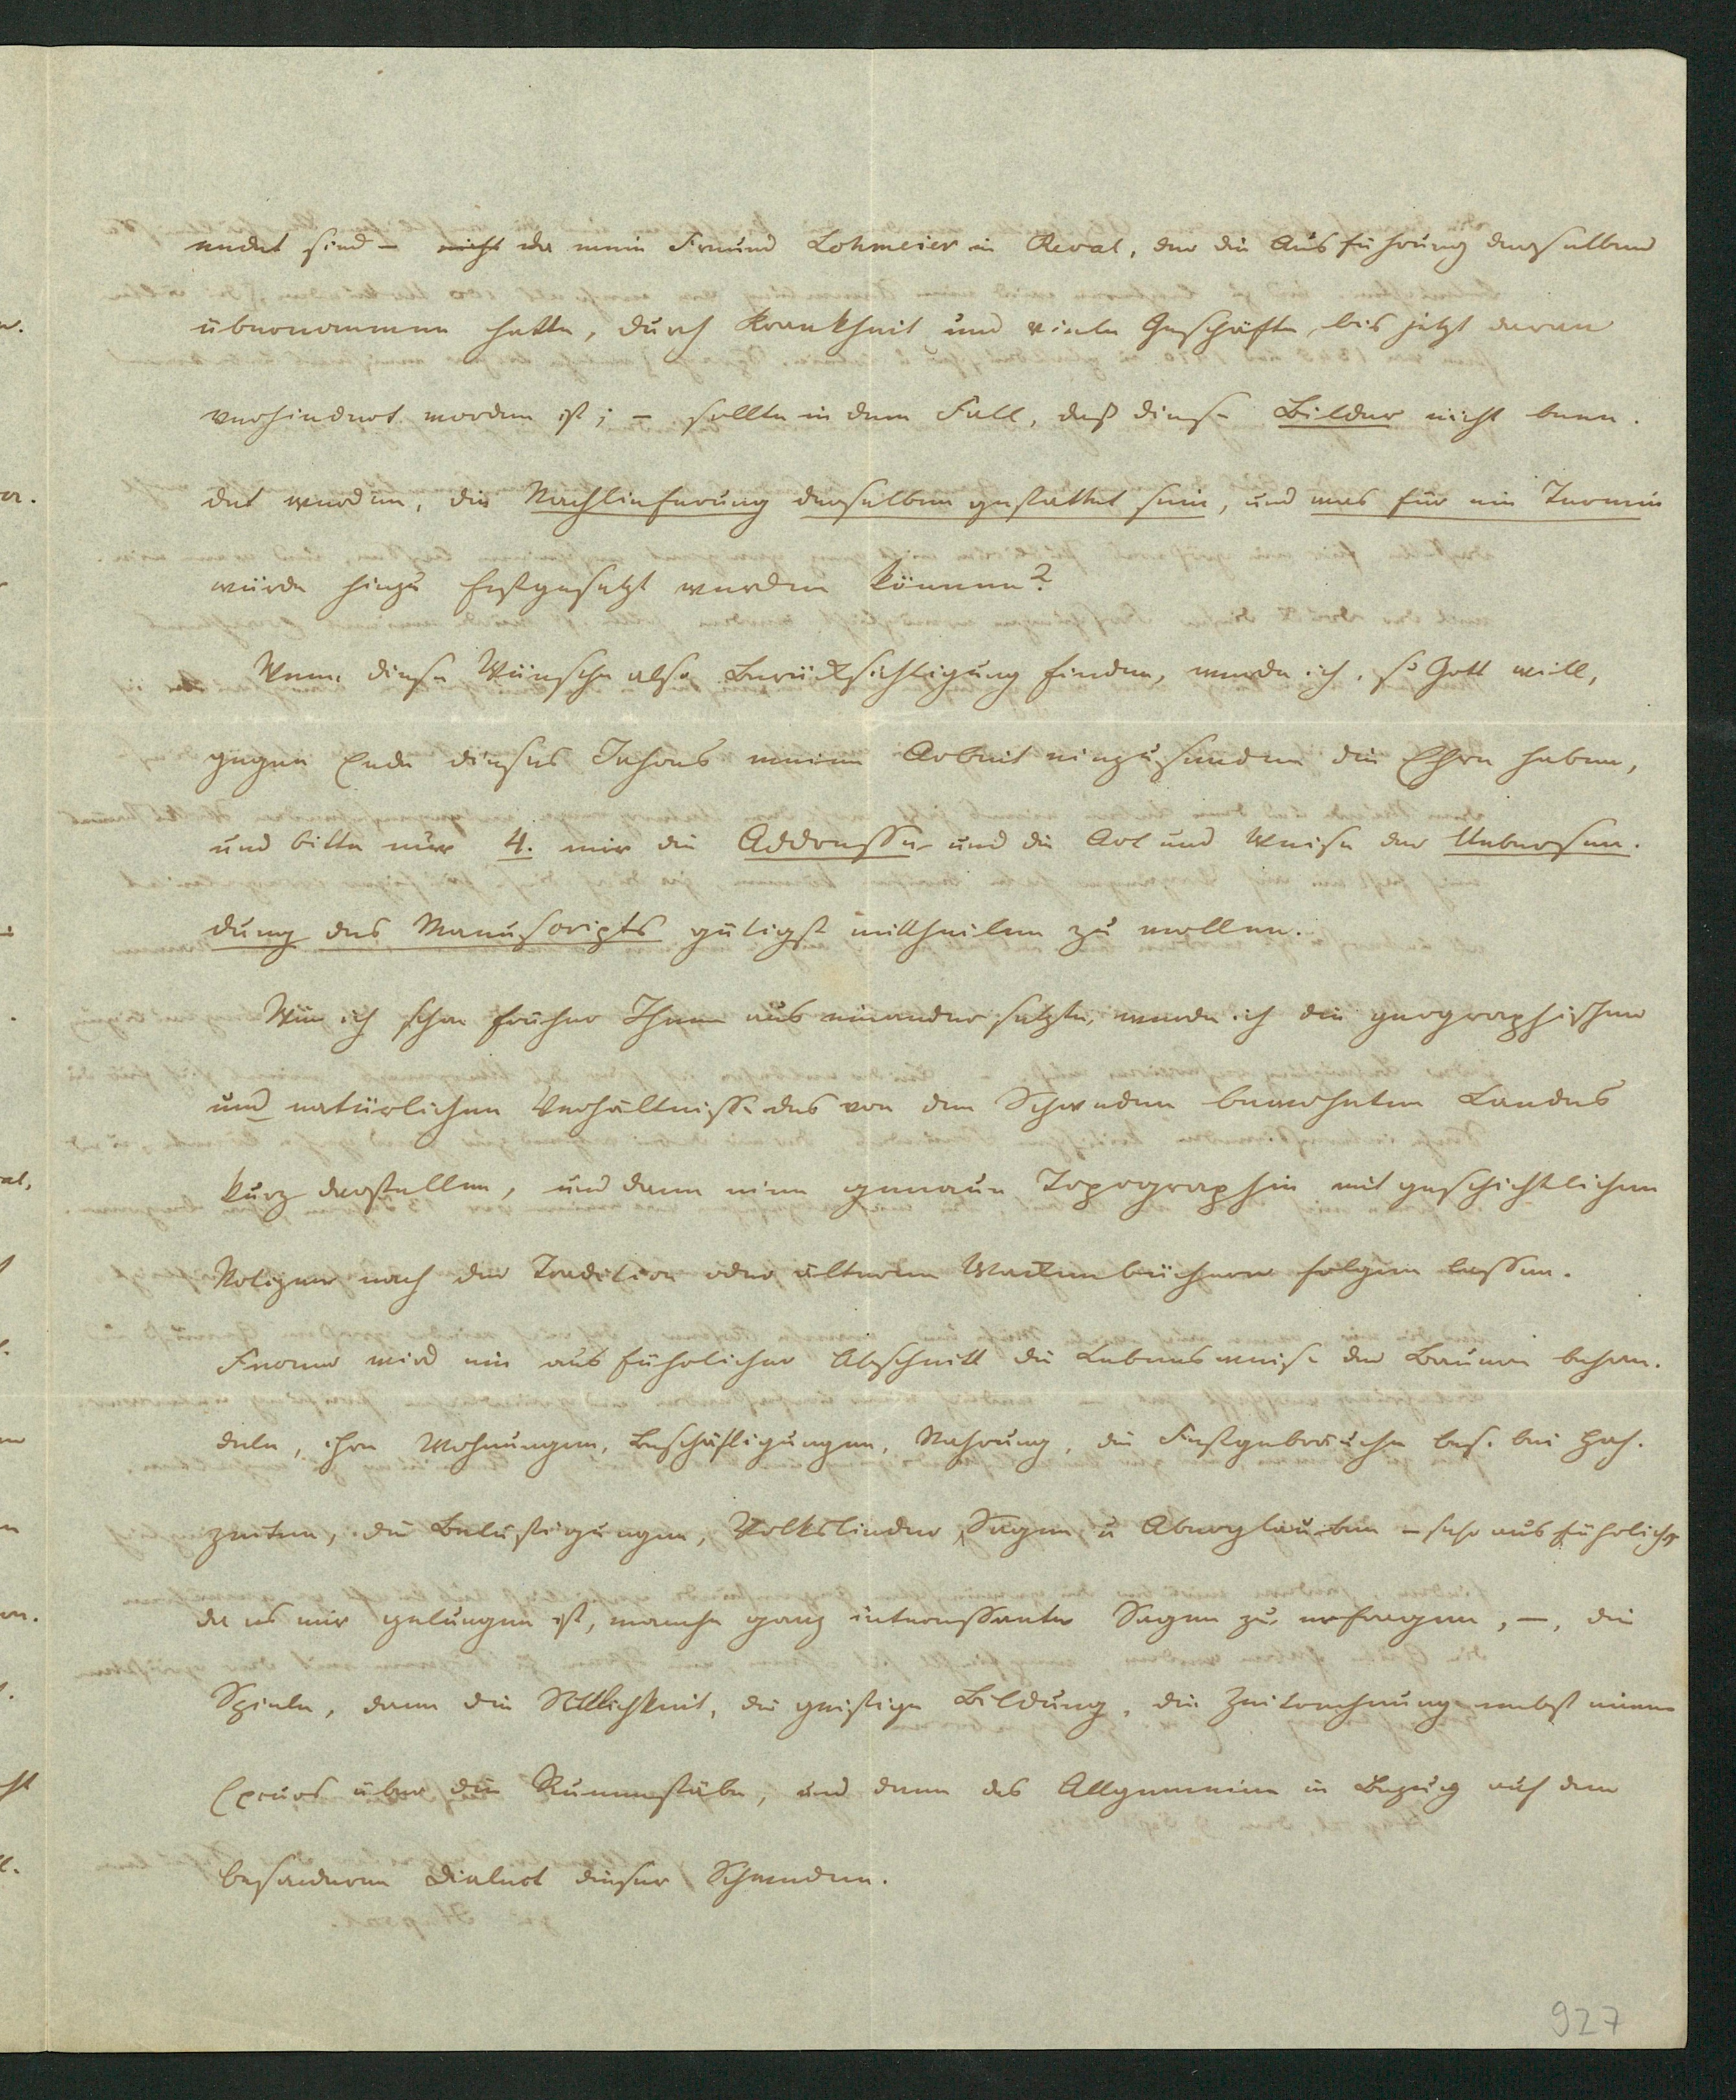 endet sind – nicht da mein Freund Lohmeier in Reval, der die Ausführung derselben
übernommen hatte, durch Krankheit und viele Geschäfte bis jetzt daran
verhindert worden ist; – sollte in dem Fall, daß diese Bilder nicht been-
det werden, die Nachlieferung derselben gestattet sein, und was für ein Termin
würde hiezu festgesetzt werden können?
Wenn diese Wünsche also Berücksichtigung finden, werde ich, so Gott will,
gegen Ende dieses Jahres meine Arbeit einzusenden die Ehre haben,
und bitte nur 4. mir die Addresse und die Art und Weise der Uebersen-
dung des Manuscripts gütigst mittheilen zu wollen.
Wie ich schon früher Ihnen aus einander setzte, werde ich die geographischen
und natürlichen Verhältnisse des von den Schweden bewohnten Landes
kurz darstellen, und dann eine genaue Topographie mit geschichtlichen
Notizen nach der Tradition oder älteren Wackenbüchern folgen lassen.
Ferner wird ein ausführlicher Abschnitt die Lebensweise der Bauern behan-
deln, ihre Wohnungen, Beschäftigungen, Nahrung, die Festgebräuche bes. bei Hoch-
zeiten, die Belustigungen, Volkslieder, Sagen u Aberglauben – sehr ausführlich,
da es mir gelungen ist, manche ganz interessante Sagen zu erfragen, –, die
Spiele, dann die Sittlichkeit, die geistige Bildung, die Zeitrechnung nebst einem
Excurs über die Runenstäbe, und dann das Allgemeine in Bezug auf den
besonderen Dialect dieser Schweden.
927